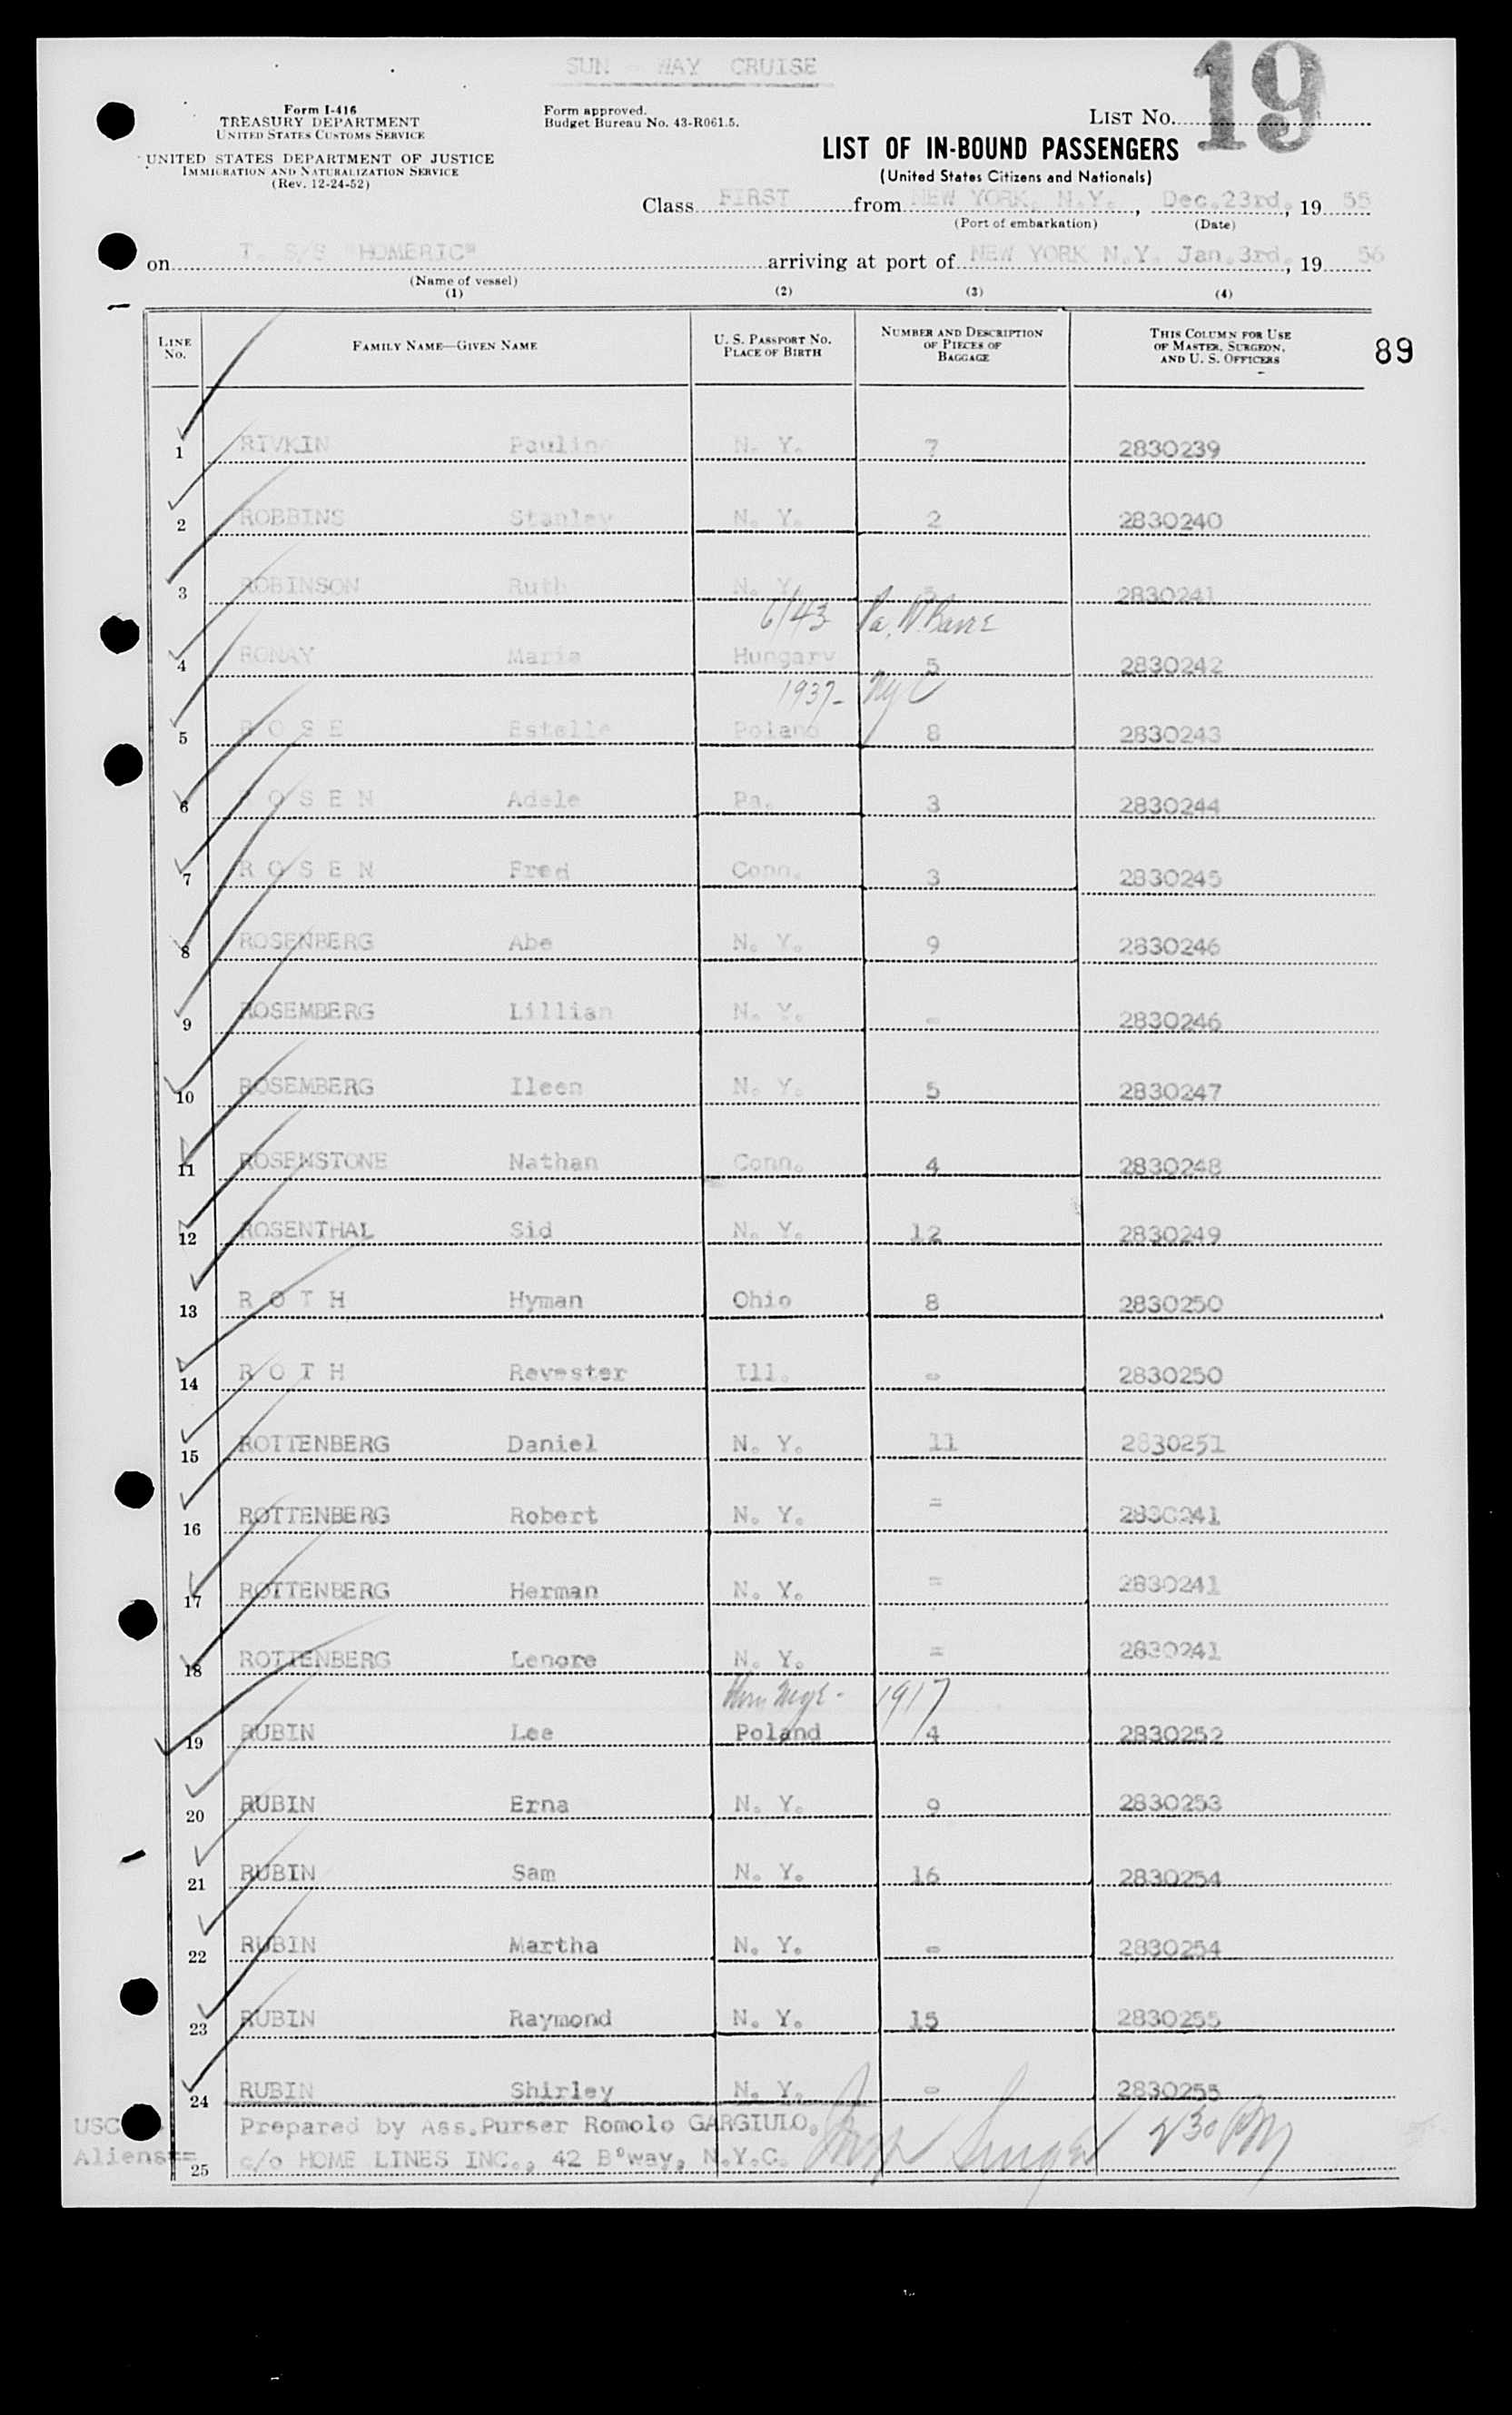 SUN - WAY CRUISE
19
Form I-416
TREASURY DEPARTMENT
UNITED STATES CUSTOMS SERVICE
UNITED STATES DEPARTMENT OF JUSTICE
IMMIGRATION AND NATURALIZATION SERVICE
(Rev. 12-24-52)
Form approved.
Budget Bureau No. 43-R061.5.
LIST No.
LIST OF IN-BOUND PASSENGERS
(United States Citizens and Nationals)
Class FIRST from NEW YORK, N.Y. , Dec.23rd, 19 55
(Port of embarkation) (Date)
on T. S/S "HOMERIC" arriving at port of NEW YORK N.Y. Jan.3rd, 19 56
(Name of vessel)
(1) (2) (3) (4)
LINE No. FAMILY NAME—GIVEN NAME U. S. PASSPORT No. PLACE OF BIRTH NUMBER AND DESCRIPTION OF PIECES OF BAGGAGE THIS COLUMN FOR USE OF MASTER, SURGEON, AND U. S. OFFICERS
89
1 RIVKIN Pauline N. Y. 7 2830239
2 ROBBINS Stanley N. Y. 2 2830240
3 ROBINSON Ruth N. Y. 2830241
6/43 Pa. W.Barre
4 RONAY Maria Hungary 5 2830242
1937- NyC
5 R O S E Estelle Poland 8 2830243
6 R O S E N Adele Pa. 3 2830244
7 R O S E N Fred Conn. 3 2830245
8 ROSENBERG Abe N. Y. 9 2830246
9 ROSEMBERG Lillian N. Y. - 2830246
10 ROSEMBERG Ileen N. Y. 5 2830247
11 ROSENSTONE Nathan Conn. 4 2830248
12 ROSENTHAL Sid N. Y. 12 2830249
13 R O T H Hyman Ohio 8 2830250
14 R O T H Revester Ill. - 2830250
15 ROTTENBERG Daniel N. Y. 11 2830251
16 ROTTENBERG Robert N. Y. = 2830241
17 ROTTENBERG Herman N. Y. = 2830241
18 ROTTENBERG Lenore N. Y. = 2830241
1917
19 RUBIN Lee Poland 4 2830252
20 RUBIN Erna N. Y. 9 2830253
21 RUBIN Sam N. Y. 16 2830254
22 RUBIN Martha N. Y. - 2830254
23 RUBIN Raymond N. Y. 15 2830255
24 RUBIN Shirley N. Y. - 2830255
USC Prepared by Ass.Purser Romolo GARGIULO,
Aliens== c/o HOME LINES INC., 42 B°way, N.Y.C.
25
230 PM